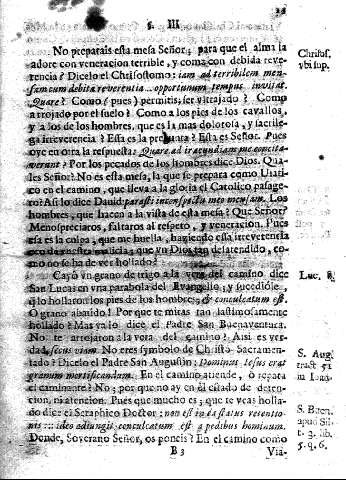 §. III
No preparais esta mesa Señor; para que el alma la
adore con veneracion terrible, y coma con debida reve-
rencia? Dicelo el Chrisostomo: iam ad terribilem men-
sam cum debita reverentia... opportunum tempus invitat.
Quare? Como (pues) permitis ser ultrajado? Como
arrojado por el suelo? Como a los pies de los cavallos,
y a los de los hombres, que es la mas dolorosa, y sacrile-
ga irreverencia? Esta es la pregunta? Esta es Señor. Pues
oye en otra la respuesta: Quare ad iracundiam me concita-
verunt? Por los pecados de los hombres dice Dios. Qua-
les Señor? No es esta mesa, la que se prepara como Viati-
co en el camino, que lleva a la gloria el Catolico pasage-
ro? Asi lo dice David: parasti in conspectu meo mensam. Los
hombres, que hacen a la vista de esta mesa? Que Señor?
Menospreciaros, faltaros al respeto, y veneracion. Pues
esa es la culpa, que me huella, haciendo esta irreverencia
un Dios tan desatendido, co-
mo no se ha de ver hollado?
Cayó un grano de trigo a la vera del camino dice
San Lucas en una parabola del Evangelio, y sucedióle,
q̃ lo hollaron los pies de los hombres; & conculcatum est.
O grano abatido! Por que te miras tan lastimosamente
hollado? Mas ya lo dice el Padre San Buenaventura.
No te arrojaron a la vera del camino? Asi es ver-
dad, secus viam. No eres symbolo de Christo Sacramen-
tado? Dicelo el Padre San Augustin: Dominus Iesus erat
granum mortificandum. En el camino atiende, o repara
el caminante? No; por que no ay en el estado de deten-
cion, ni atencion. Pues que mucho es; que te veas holla-
do dice el Seraphico Doctor: non est in ea status retentio-
nis... ideo adiungit conculcatum est a pedibus hominum.
Donde, Soverano Señor, os poneis? En el camino como
B 3 Via-
Chrisos.
ubi sup.
Luc. 8.
S. Aug.
tract 51
in Ioan.
S. Buen.
apud Sil
t. 3. lib.
5. q. 6.